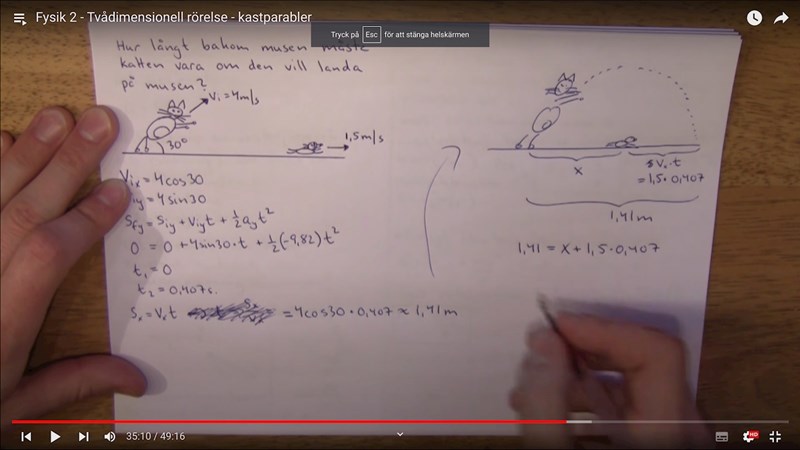 Fysik 2 - Tvådimensionell rörelse - kastparabler
Tryck på Esc för att stänga helskärmen
Hur långt bakom musen måste
katten vara om den vill landa
på musen?
Vi = 4 m/s
30°
1,5 m/s
Vix = 4cos30
Viy = 4sin30
Sfy = Siy + Viyt + ½ayt²
0 = 0 + 4sin30·t + ½(-9,82)t²
t₁ = 0
t₂ = 0,407s.
Sx = Vxt = 4cos30·0,407 ≈ 1,41m
x
Vx·t
= 1,5·0,407
1,41m
1,41 = x + 1,5·0,407
35:10 / 49:16
HD